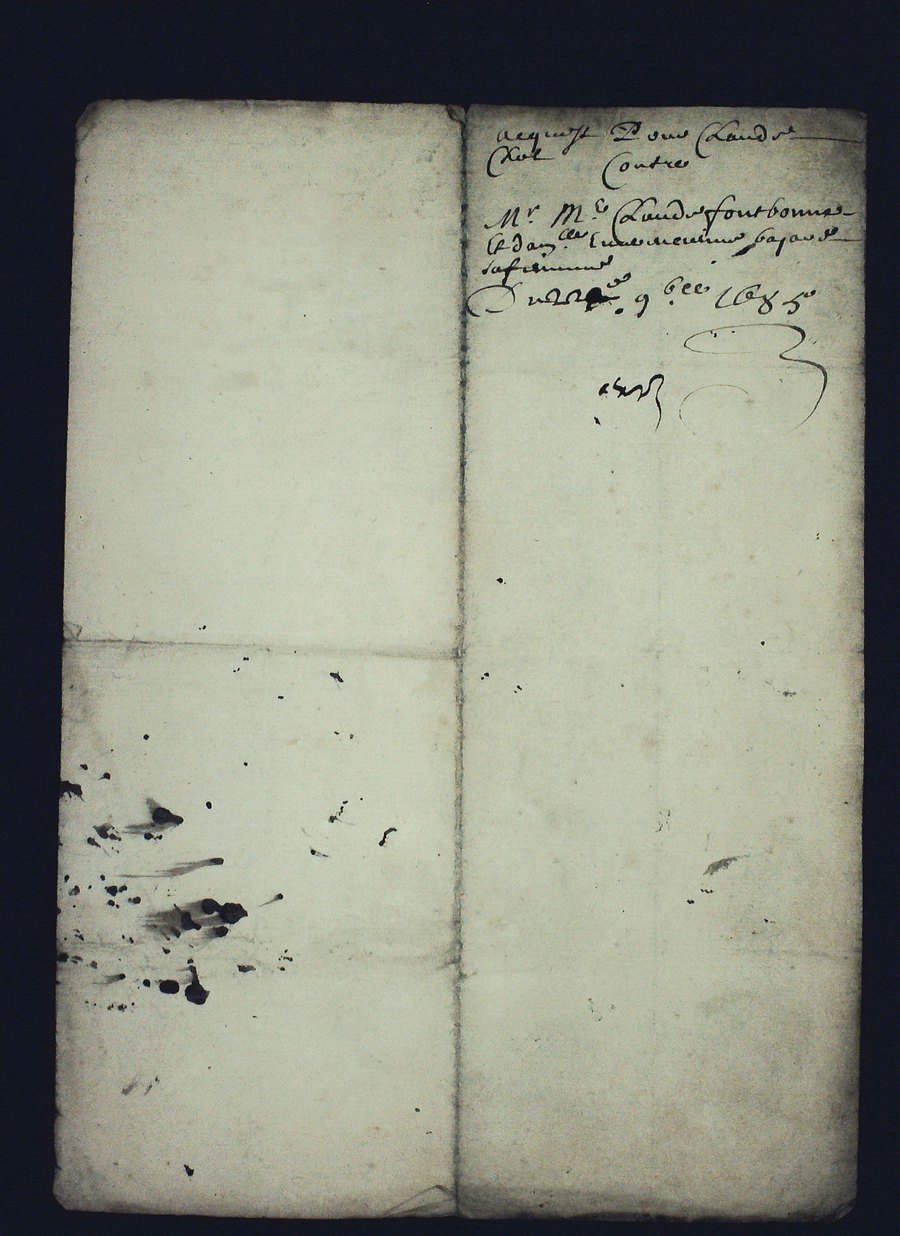 acquist Pour Claude
Clot Contre
Mr. Me Claude fontbonne
Et dam.lle bajard
safemme
Du 22e 9bre 1685